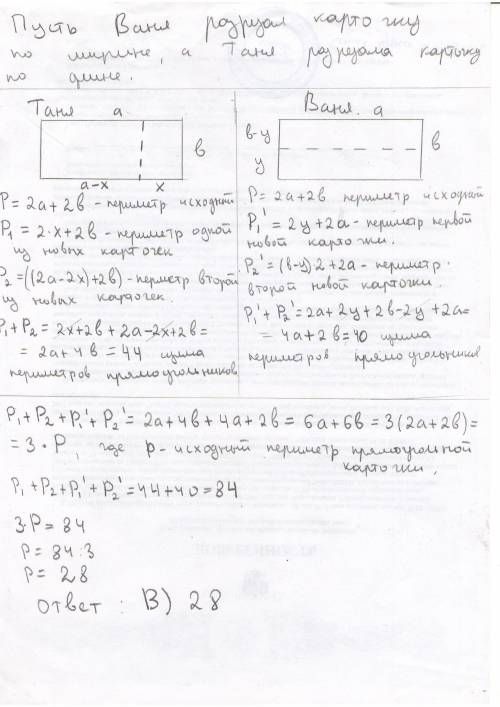 Пусть Ваня разрезал карточку
по ширине, а Таня разрезала карточку
по длине.
Таня a
в
a-x x
P = 2a + 2в - периметр исходный
P1 = 2·x + 2в - периметр одной
из новых карточек
P2 = ((2a-2x)+2в) - перметр второй
из новых карточек.
P1 + P2 = 2x+2в + 2a-2x+2в =
= 2a + 4в = 44 сумма
периметров прямоугольников
Ваня. a
в-y
y
в
P = 2a + 2в периметр исходный
P1' = 2y + 2a - периметр первой
новой карточки.
P2' = (в-y)·2 + 2a - периметр
второй новой карточки.
P1' + P2' = 2a + 2y + 2в - 2y + 2a =
= 4a + 2в = 40 сумма
периметров прямоугольников
P1 + P2 + P1' + P2' = 2a + 4в + 4a + 2в = 6a + 6в = 3(2a+2в) =
= 3·P, где p - исходный периметр прямоугольной
карточки.
P1 + P2 + P1' + P2' = 44 + 40 = 84
3·P = 84
P = 84:3
P = 28
ответ: В) 28